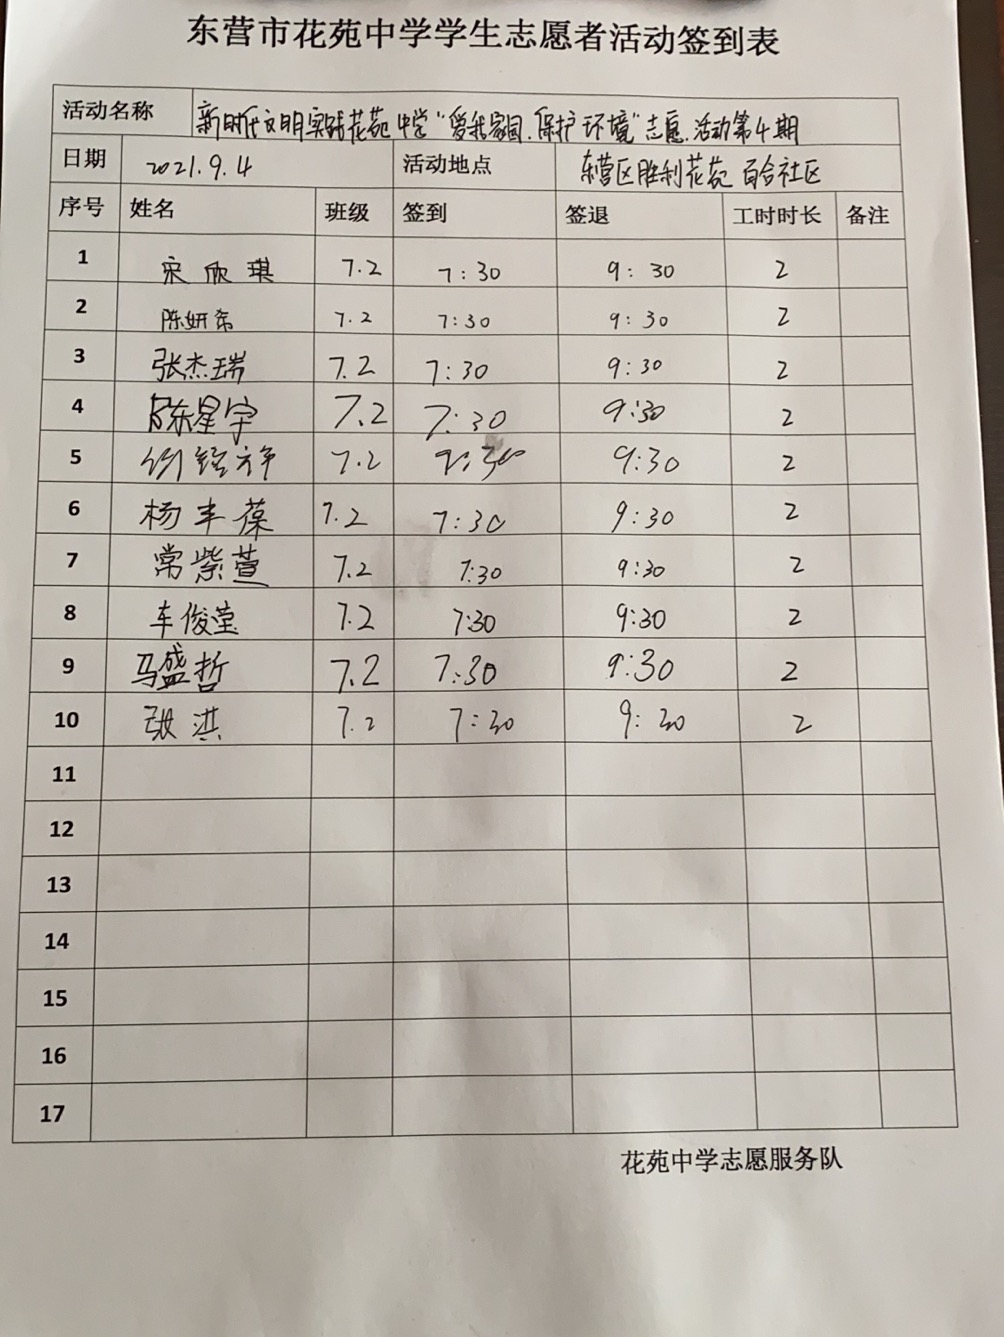 东营市花苑中学学生志愿者活动签到表
活动名称 新时代文明实践花苑中学“爱我家园、保护环境”志愿活动第4期
日期 2021.9.4 活动地点 东营区胜利花苑百合社区
序号 姓名 班级 签到 签退 工时时长 备注
1 宋欣琪 7.2 7:30 9:30 2
2 陈妍希 7.2 7:30 9:30 2
3 张杰瑞 7.2 7:30 9:30 2
4 陈星宇 7.2 7:30 9:30 2
5 7.2 7:30 9:30 2
6 杨丰葆 7.2 7:30 9:30 2
7 常紫萱 7.2 7:30 9:30 2
8 车俊莹 7.2 7:30 9:30 2
9 马盛哲 7.2 7:30 9:30 2
10 张淇 7.2 7:30 9:30 2
11
12
13
14
15
16
17
花苑中学志愿服务队